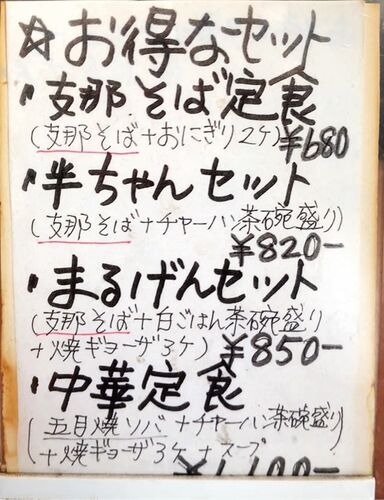 ☆お得なセット
・支那そば定食
(支那そば+おにぎり2ヶ) ¥680
・半ちゃんセット
(支那そば+チャーハン茶碗盛り)
¥820-
・まるげんセット
(支那そば+白ごはん茶碗盛り
+焼ギョーザ3ヶ) ¥850-
・中華定食
(五目焼ソバ+チャーハン茶碗盛り
+焼ギョーザ3ヶ+スープ